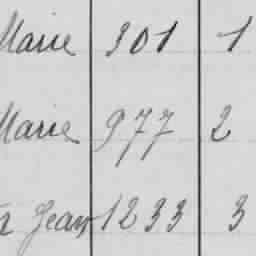 Marie 301 1
Marie 977 2
Jean 1233 3